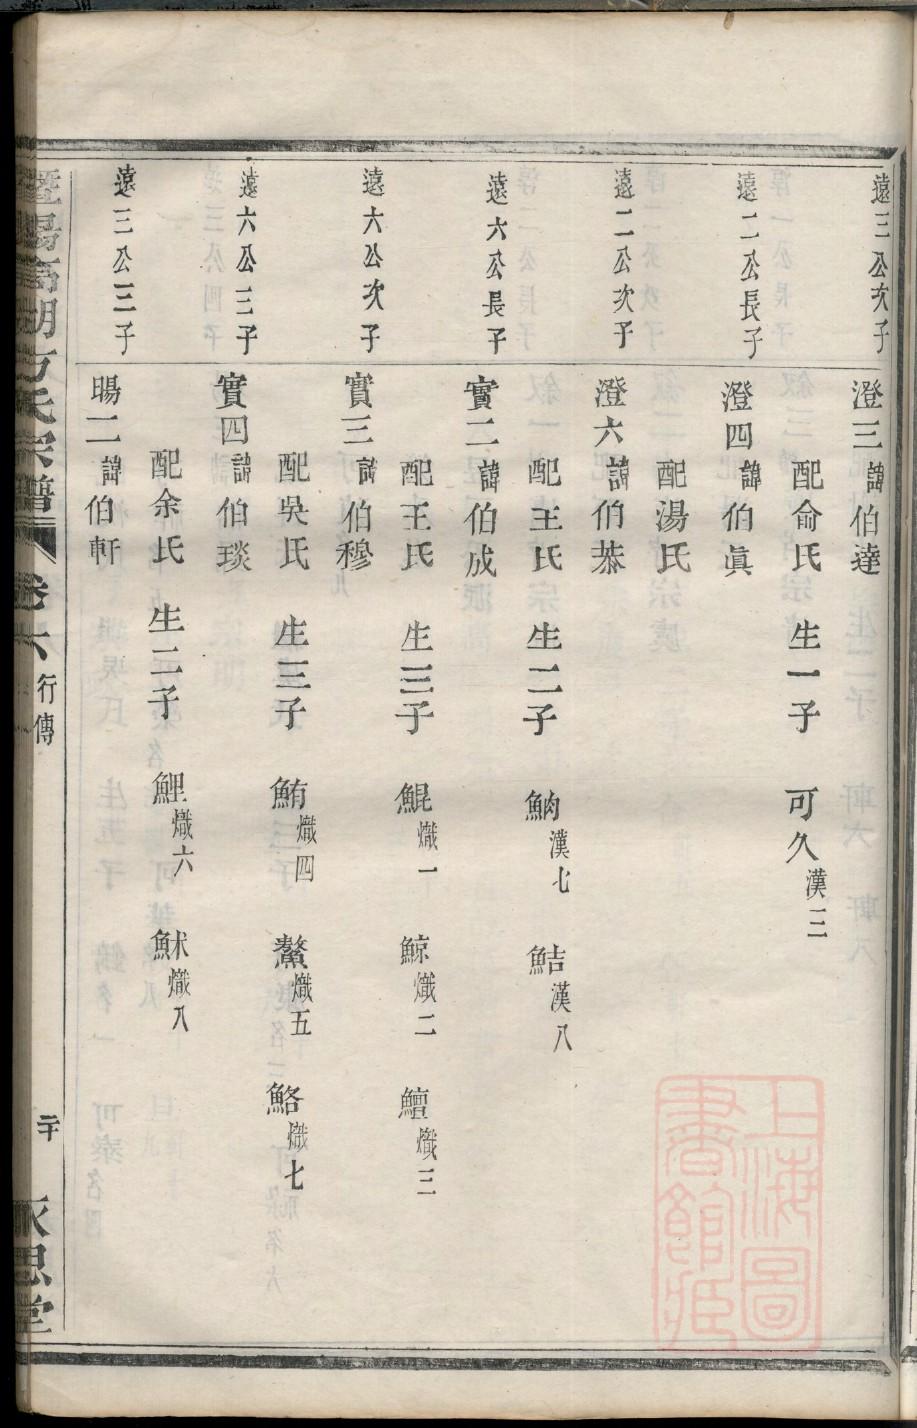 遠三公次子
澄三諱伯達
配俞氏 生一子 可久漢三
遠二公長子
澄四諱伯眞
配湯氏
遠二公次子
澄六諱伯恭
配王氏 生二子 魶漢七 鮚漢八
遠六公長子
實二諱伯成
配王氏 生三子 鯤熾一 鯨熾二 鱣熾三
遠六公次子
實三諱伯穆
配吳氏 生三子 鮪熾四 鰲熾五 鮥熾七
遠六公三子
實四諱伯琰
配余氏 生二子 鯉熾六 鮴熾八
遠三公三子
暘二諱伯軒
暨陽高湖方氏宗譜 卷六 行傳 二十 永思堂
上海圖書館藏